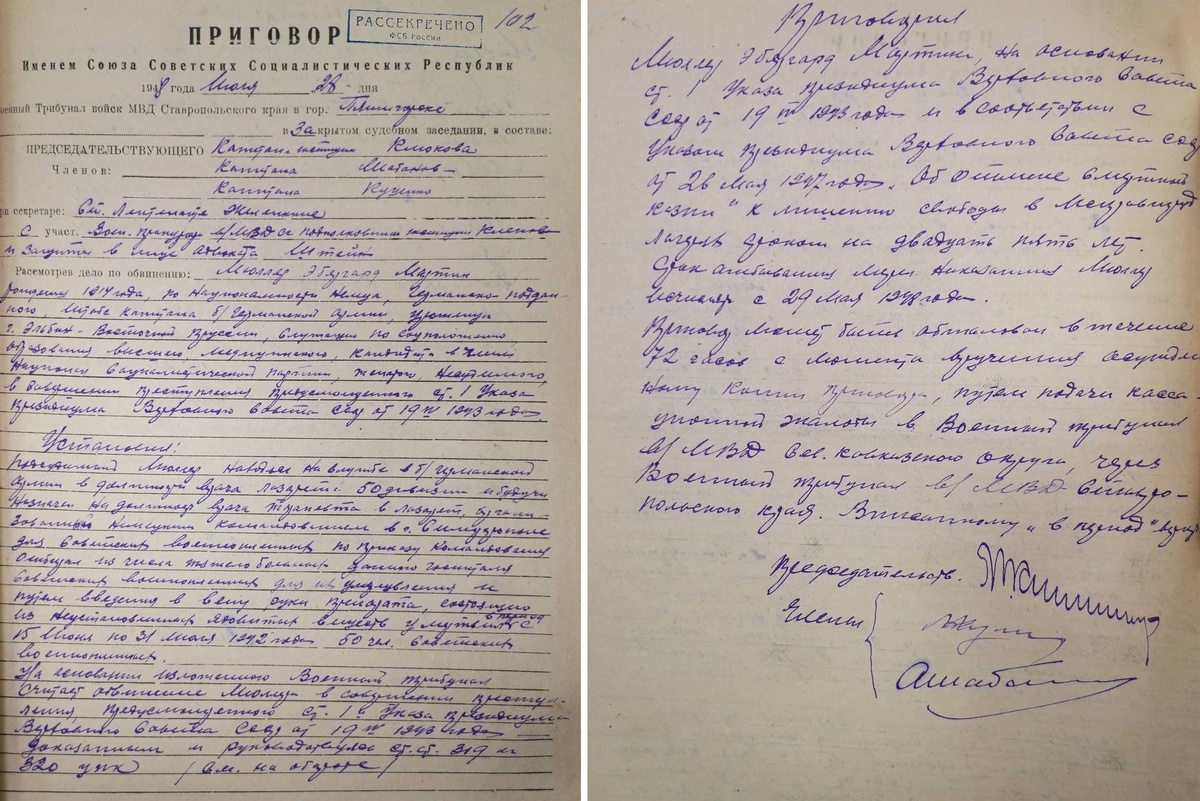 РАССЕКРЕЧЕНО
ФСБ РОССИИ
102
ПРИГОВОР
Именем Союза Советских Социалистических Республик
1948 года Июля 28 " дня
оенный Трибунал войск МВД Ставропольского края в гор. Пятигорске
в закрытом судебном заседании, в составе:
ПРЕДСЕДАТЕЛЬСТВУЮЩЕГО Капитан юстиции Клюкова
Членов: Капитана Шабанов
Капитана Куценко
ри секретаре: Ст. Лейтенанте
с участ. Воен. прокурора в/МВД ск подполковника юстиции
и защиты в лице адвоката Штейн
Рассмотрев дело по обвинению: Мюллер Эбергард Мартин
рождения 1917 года, по национальности немца, германско-поддан-
ного, капитана б/германской армии, уроженца
г. Эльбин - Восточной Пруссии, служащего по соцположению
образования высшего, медицинского, кандидата в члены
Национал социалистической партии, женатого, несудимого,
в совершении преступления предусмотренного ст. 1 Указа
Президиума Верховного Совета СССР от 19 IV 1943 года.
Установил:
Подсудимый Мюллер находясь на службе в б/германской
армии в должности врача лазарета 50 дивизии и будучи
назначен на должность врача терапевта в лазарет, органи-
зованный немецким командованием в г. Симферополе
для советских военнопленных по приказу командования
отбирал из числа тяжело больных данного госпиталя
советских военнопленных для их умерщвления и
путем введения в вену руки препарата, состоящего
из неустановленных ядовитых веществ умертвил в период с
15 июня по 31 июля 1942 года 50 чел. советских
военнопленных.
На основании изложенного Военный трибунал
считает обвинение Мюллера в совершении преступ-
ления предусмотренного ст. 1 Указа Президиума
Верховного Совета СССР от 19 IV 1943 года
доказанным и руководствуясь ст. ст. 319 и
320 упк / см. на обороте /
Приговорил
Мюллер Эбергард Мартин, на основании
ст. 1 Указа Президиума Верховного Совета
СССР от 19 IV 1943 года и в соответствии с
Указом Президиума Верховного Совета СССР
от 26 мая 1947 года „Об отмене смертной
казни" к лишению свободы в исправтруд
лагерях сроком на двадцать пять лет.
Срок отбывания меры наказания Мюллер
исчислять с 29 мая 1948 года.
Приговор может быть обжалован в течение
72 часов с момента вручения осужден-
ному копии приговора, путем подачи касса-
ционной жалобы в Военный трибунал
в/МВД Сев. Кавказского округа, через
Военный трибунал в/МВД Ставро-
польского края. Вписанному „в период" верить
Председательств.
Члены